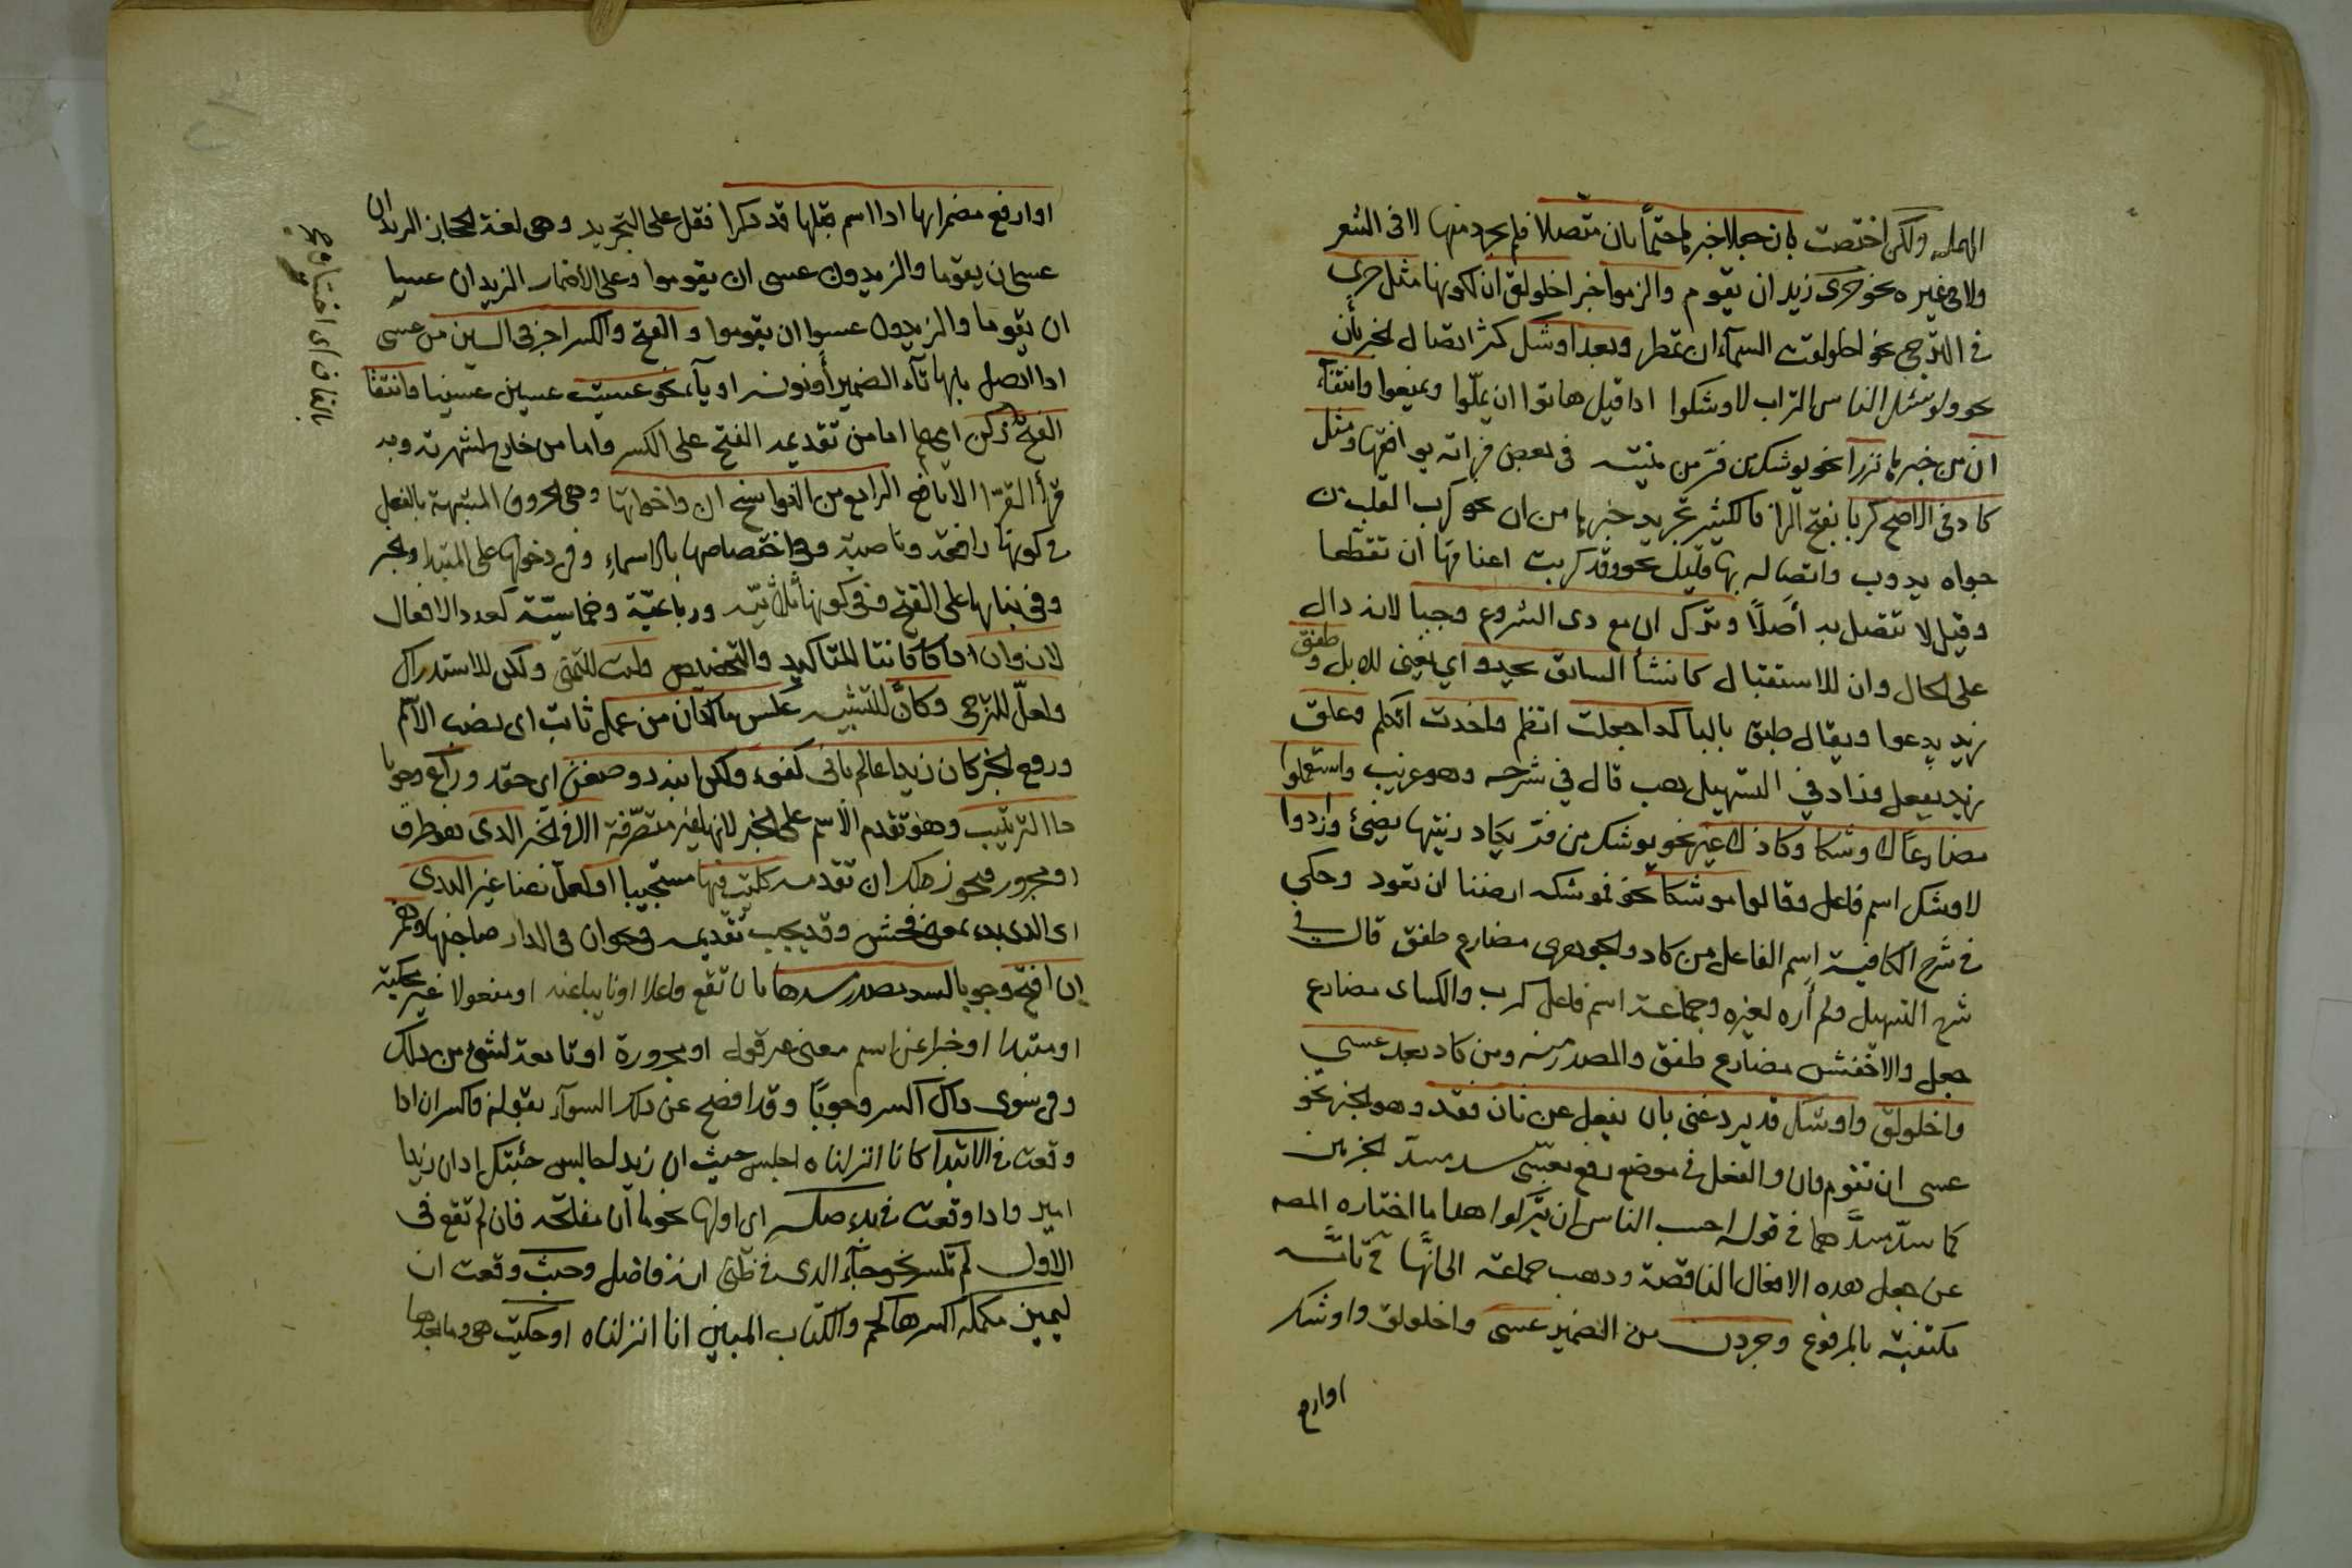 المهملة ولكن اختصت بان جعلا خبرها حتما بان متصلا فلم يجرد منها لا فى الشعر
ولا فى غيره نحو حرى زيد ان يقوم والزموا خبر اخلولق ان لكونها مثل حرى
فى الترجى نحو اخلولقت السمآء ان تمطر وبعد اوشك كثر اتصال الخبر بأن
نحو ولو سئل الناس التراب لاوشكوا اذا قيل هاتوا ان يملّوا ويمنعوا وانتفآء
ان من خبرها نزرا نحو يوشك من فرّ من منيته فى بعض غراته يوافقها ومثل
كاد فى الاصح كربا بفتح الرا فالكثير تجريد خبرها من ان نحو كرب القلب من
جواه يذوب واتصاله بها قليل نحو وقد كربت اعناقها ان تقطعا
وقيل لا تتصل به أصلًا وترك ان مع ذى الشروع وجبا لانه دال
على الحال وان للاستقبال كانشأ السائق يحدو اي يغنى للابل وطفق
زيد يدعوا ويقال طبق بالبا كذا جعلت انظم واخذت اتكلم وعلق
زيد يفعل وزاد في التسهيل هب قال في شرحه وهو غريب واستعملوا
مضارعًا لاوشكا وكاد لا غير نحو يوشك من فرّ يكاد زيتها يضئ وزادوا
لاوشك اسم فاعل وقالوا موشكا نحو فموشكه ارضنا ان تعود وحكي
فى شرح الكافية اسم الفاعل من كاد والجوهرى مضارع طفق قال في
شرح التسهيل ولم أره لغيره وجماعة اسم فاعل كرب والكساى مضارع
جعل والاخفش مضارع طفق والمصدر منه ومن كاد بعد عسي
واخلولق واوشك قد يرد غنى بان يفعل عن ثان فقد وهو الخبر نحو
عسى ان تقوم فان والفعل فى موضع رفع بعسى سد مسدّ الجزءين
كما سدّ مسدّهما فى قوله احسب الناس ان يتركوا هذا ما اختاره المصه
عن جعل هذه الافعال الناقصة وذهب جماعة الى انها ح تامّه
مكتفية بالمرفوع وجردن من الضمير عسى واخلولق واوشك
اوارفع
اوارفع مضمرا بها اذا اسم قبلها قد ذكرا فقل على التجريد وهى لغة الحجاز الزيدان
عسى ان يقوما والزيدون عسى ان يقوموا وعلى الأضمار الزيدان عسيا
ان يقوما والزيدون عسوا ان يقوموا والفتح والكسر اجز فى السين من عسى
اذا اتصل بها تآء الضمير أونونه او نا نحو عسيت عسين عسينا وانتقا
الفتح زكن اى علم اما من تقديمه الفتح على الكسر واما من خارج لشهرته وبه
قرأ القرّا الا نافع الرابع من النواسخ ان واخواتها وهى الحروف المشبهة بالفعل
فى كونها رافعة وناصبة وفى اختصاصها بالاسماء وفى دخولها على المبتدا والخبر
وفى بنائها على الفتح وفى كونها ثلاثيّه ورباعيّة وخماسيّة كعدد الافعال
لان وان اذا كانتا للتاكيد والتحقيق وليت للتمنى ولكن للاستدراك
ولعلّ للترجى وكأنّ للتشبيه عكس ما لكان من عمل ثابت اى نصب الاسم
ورفع الخبر كان زيدا عالم بانى كفوء ولكن ابنه ذو ضغن اى حقد وراع وجوبا
ذا الترتيب وهو تقدم الأسم على الخبر لانها غير متصرّفة الا فى الخبر الذى هو ظرف
او مجرور فيجوز لك ان تقدمه كليت فيها مستحييا او لعلّ هنا غير البذى
اى الذى بذء بمعنى فحش وقد يجب تقديمه نحو ان فى الدار صاحبها وهمز
ان افتح وجوبا لسد مصدر مسدها بان تقع فاعلا او نايبا عنه او مفعولا غير محكية
او مبتدا او خبرا عن اسم معنى غير قول او مجرورة او تابعة لشئ من ذلك
وفى سوى ذاك اكسر وجوبًا وقد افصح عن ذلك السوآ بقوله فاكسر ان اذا
وقعت فى الابتدا كانا انزلناه اجلس حيث ان زيدا جالس جئتك اذ ان زيدا
امير واذا وقعت فى بدء صله اى اولها نحو ما ان مفاتحه فان لم تقع فى
الاول لم تكسر نحو جآء الذى فى ظنى انه فاضل وحيث وقعت ان
ليمين مكمله اكسرها كحم والكتاب المبين انا انزلناه او حكيت هى وما بعدها
بالقاف اى اختيار